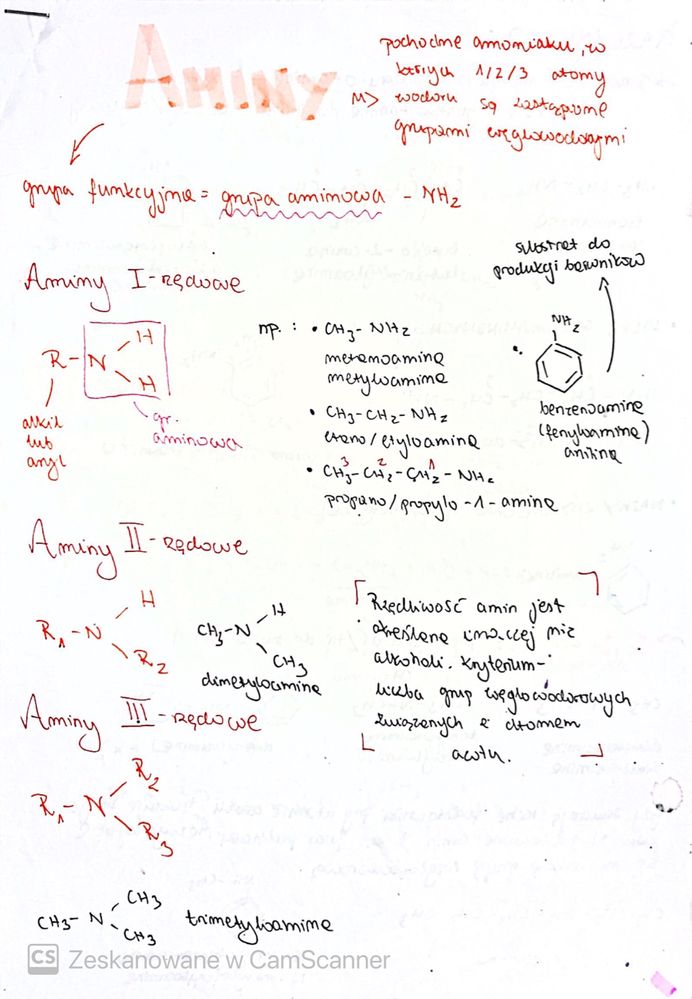 AMINY
pochodne amoniaku, w
których 1/2/3 atomy
wodoru są zastąpione
grupami węglowodorowymi
grupa funkcyjna = grupa aminowa - NH2
Aminy I-rzędowe
substrat do
produkcji barwników
R-N
H
H
gr.
aminowa
alkil
lub
aryl
np. : • CH3- NH2
metanoamina
metyloamina
• CH3-CH2-NH2
etano/etyloamina
3 2 1
• CH3-CH2-CH2-NH2
propano/propylo-1-amina
NH2
benzenoamina
(fenyloamina)
anilina
Aminy II-rzędowe
R1-N
H
R2
CH3-N
H
CH3
dimetyloamina
Rzędowość amin jest
określana inaczej niż
alkoholi. Kryterium-
liczba grup węglowodorowych
związanych z atomem
azotu.
Aminy III-rzędowe
R1-N
R2
R3
CH3-N
CH3
CH3
trimetyloamina
CS Zeskanowane w CamScanner